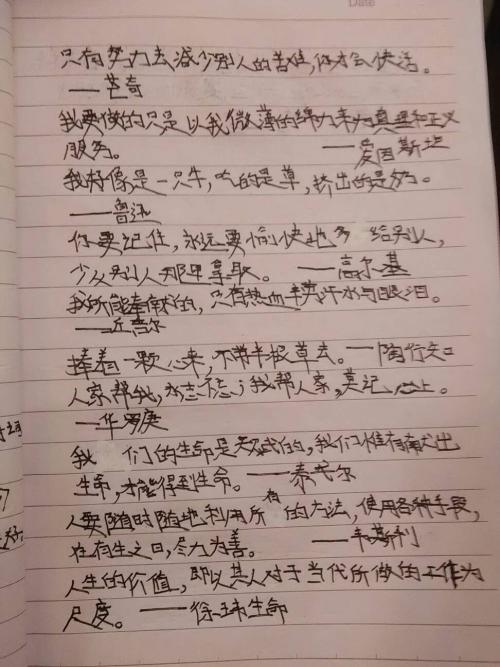 Date
只有努力去减少别人的苦难,你才会快活。
——芒奇
我要做的只是以我微薄的绵力来为真理和正义
服务。 ——爱因斯坦
我好像是一只牛,吃的是草,挤出的是奶。
——鲁迅
你要记住,永远要愉快地多 给别人,
少从别人那里拿取。 ——高尔基
我所能奉献的,只有热血 汗水与眼泪。
——丘吉尔
捧着一颗心来,不带半根草去。——陶行知
人家帮我,永志 我帮人家,莫记 上。
——华罗庚
我 们的生命是 的,我们惟有献出
生命,才能得到生命。 ——泰戈尔
人要随时随地利用所有的方法,使用各种手段,
在有生之日,尽力为善。 ——韦斯利
人生的价值,即以其人对于当代所做的工作为
尺度。 ——徐玮生命